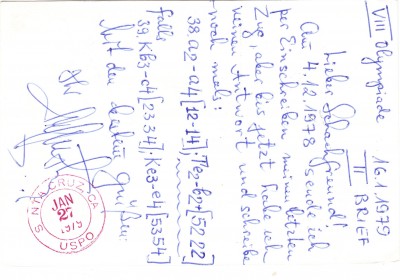 VIII Olympiade 16.1.1979
II BRIEF
Lieber Schachfreund!
Am 4.12.1978 sende ich
per Einschreiben meinen letzten
Zug, aber bis jetzt habe ich
keinen Antwort und schreibe
noch mals:
38.a2-a4[12-14]; Te2-b2+[5222]
falls
39.Kb3-c4[2334]; Ke3-e4[5354]
Mit den besten Grüßen
Ihr
SANTA CRUZ, CA
JAN
27
1979
USPO